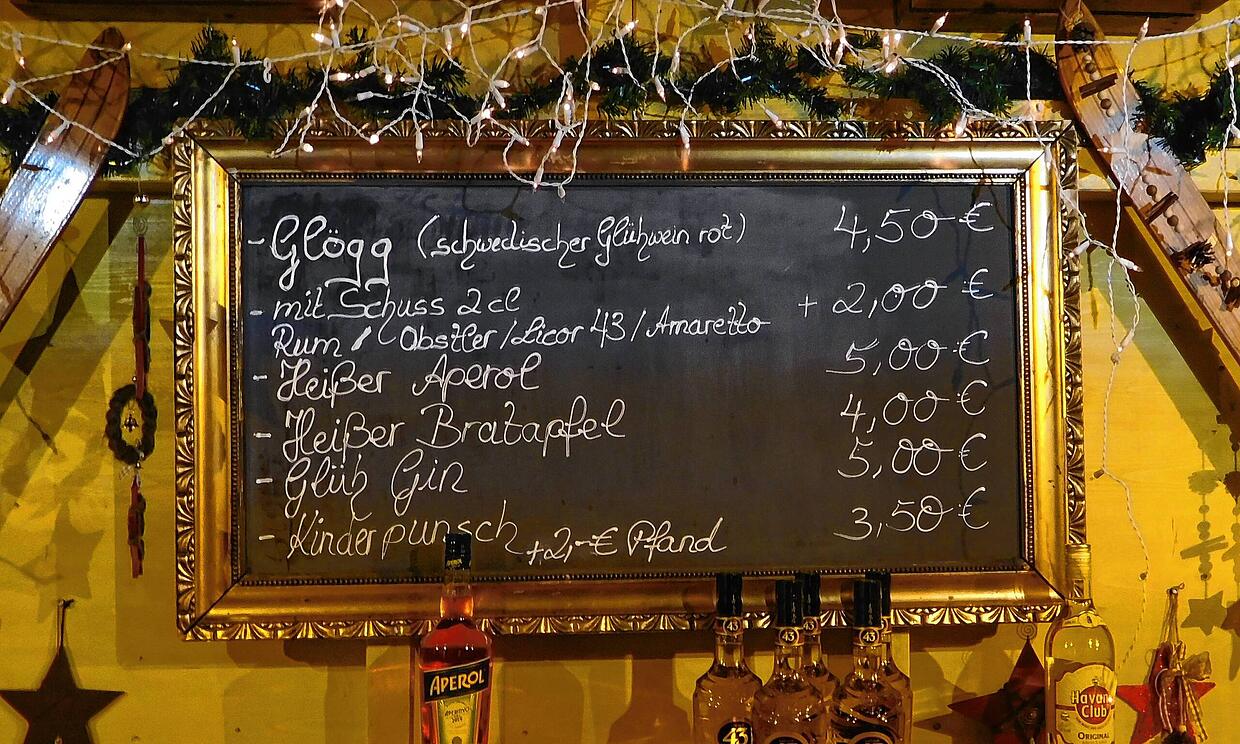 - Glögg (schwedischer Glühwein rot) 4,50 €
- mit Schuss 2 cl + 2,00 €
Rum / Obstler / Licor 43 / Amaretto
- Heißer Aperol 5,00 €
- Heißer Bratapfel 4,00 €
- Glüh Gin 5,00 €
- Kinderpunsch 3,50 €
+2,-€ Pfand
APEROL
43
43
43
43
43
Havana Club
ORIGINAL